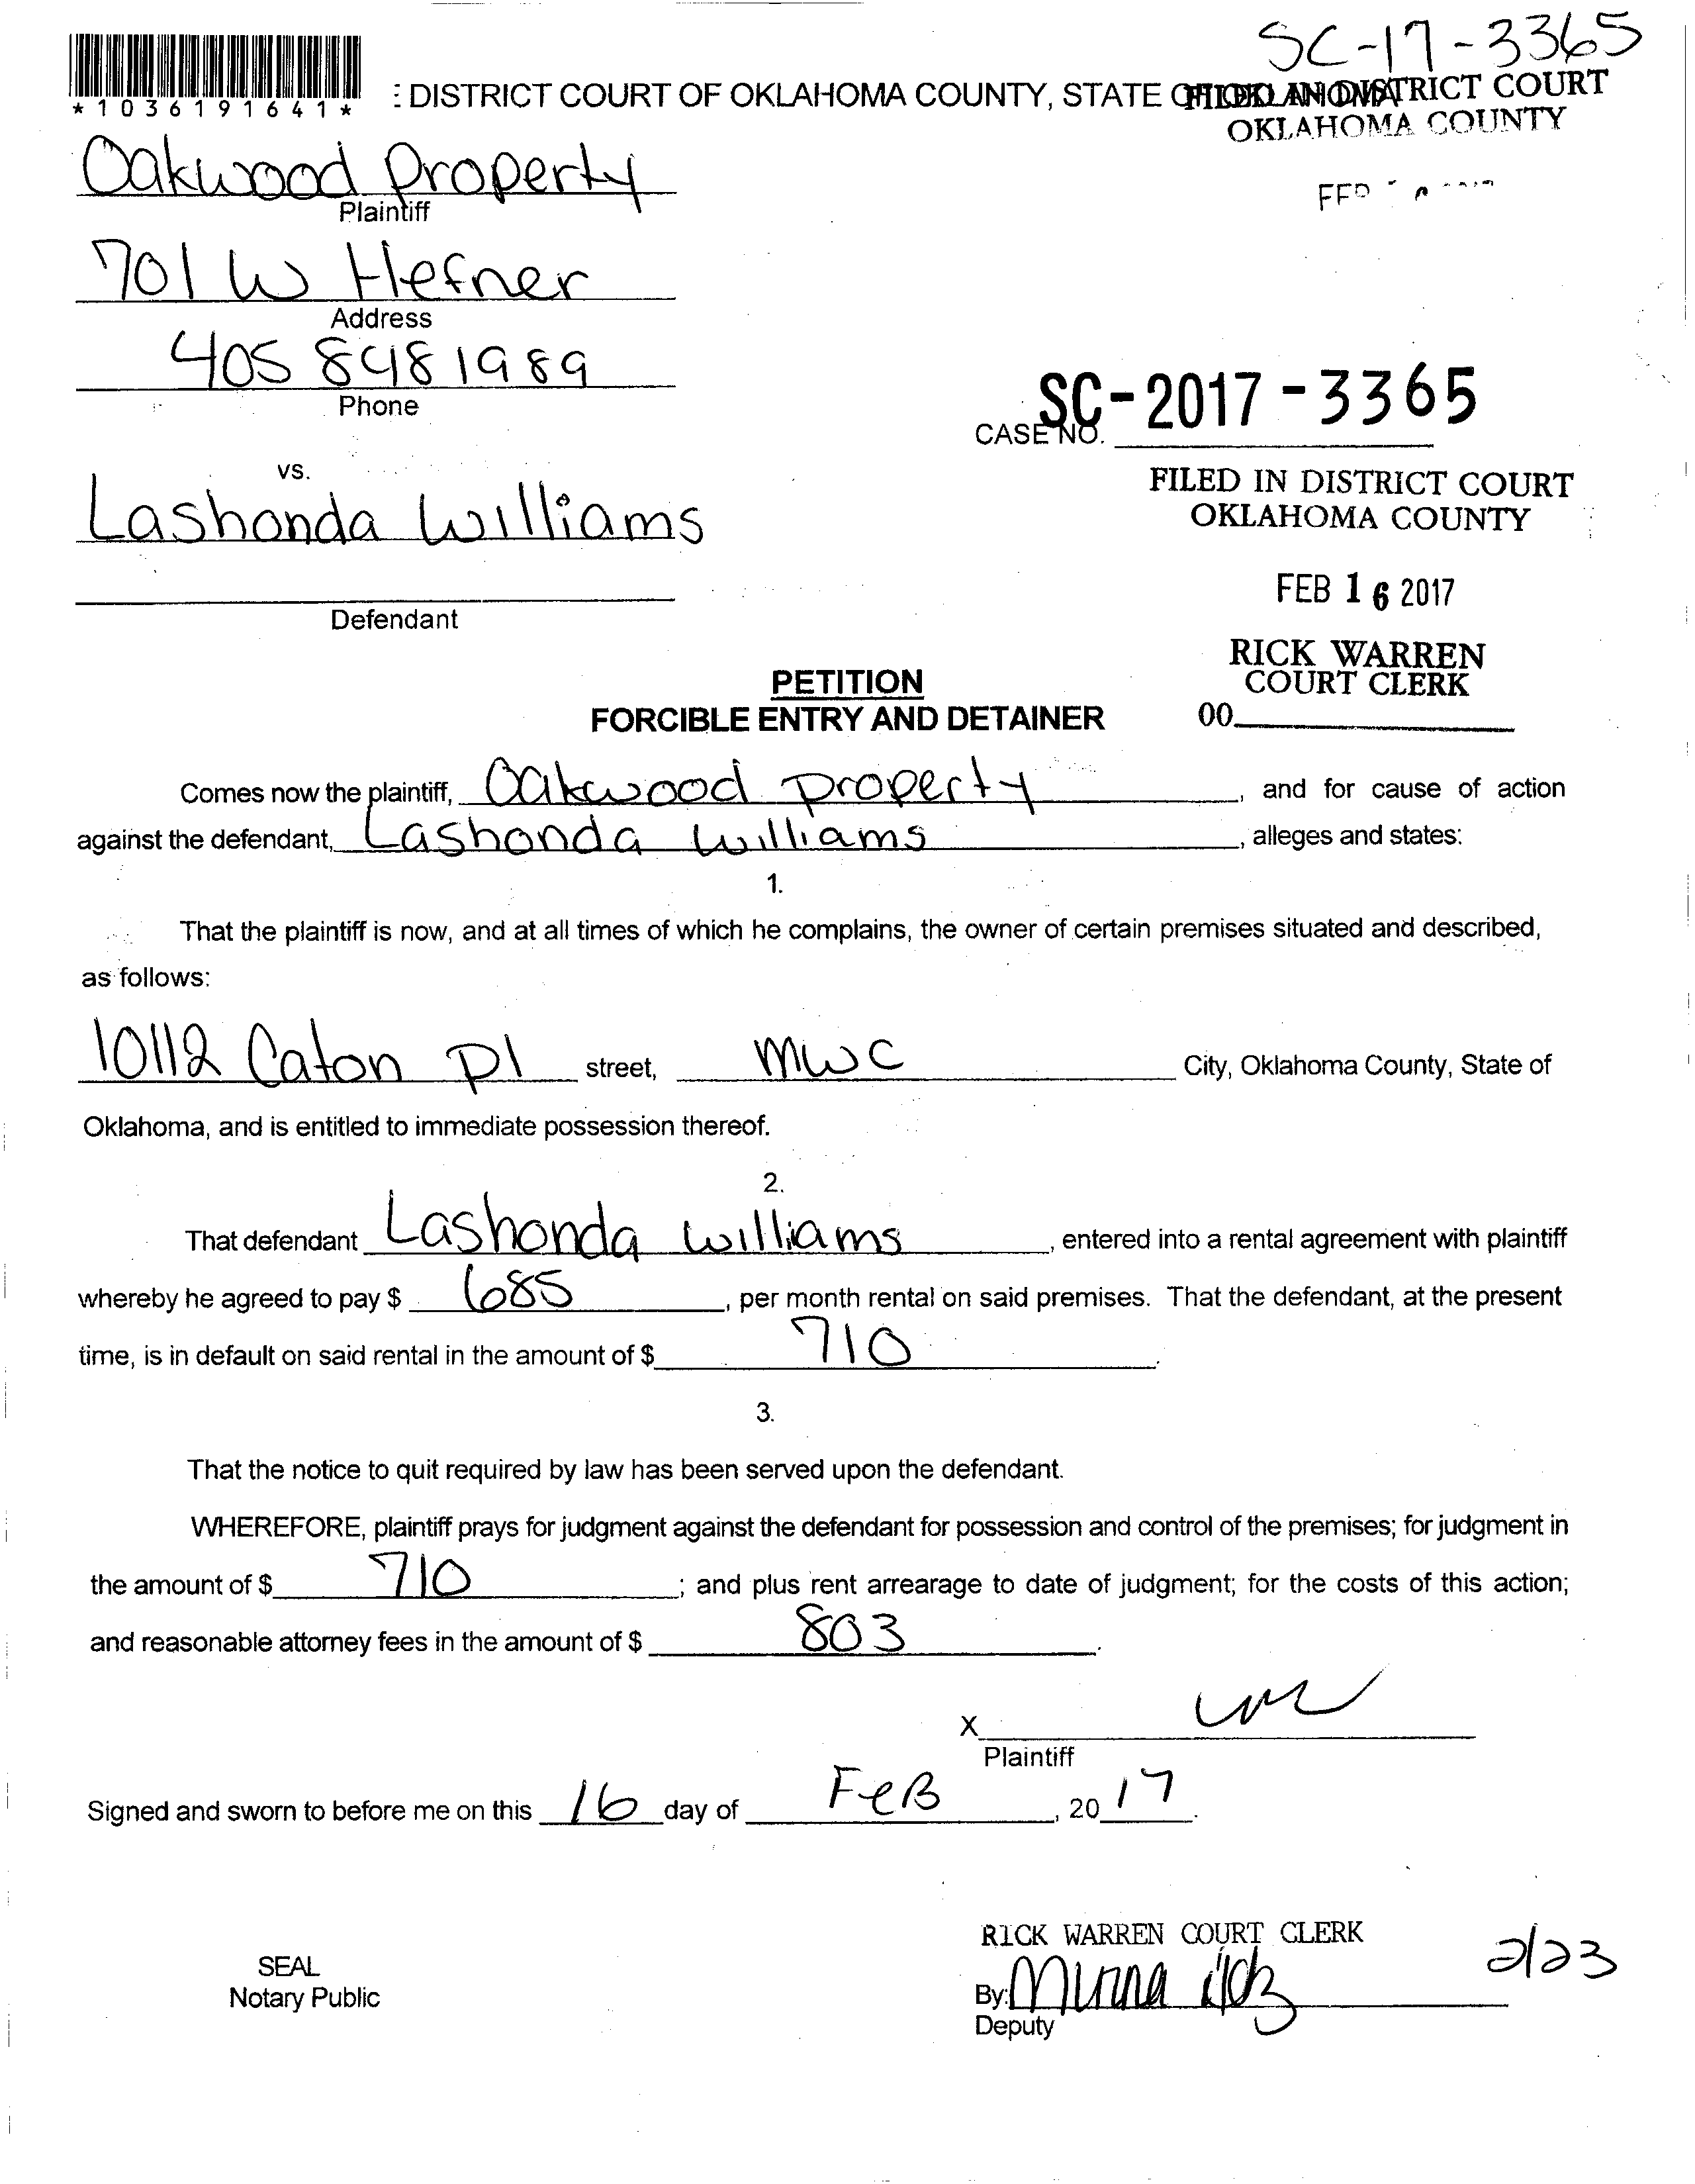 SC-17-3365
*1036191641*
: DISTRICT COURT OF OKLAHOMA COUNTY, STATE OF OKLAHOMA
FILED IN DISTRICT COURT
OKLAHOMA COUNTY
Oakwood Property
Plaintiff
701 W Hefner
Address
405 848 1989
Phone
SC-2017-3365
CASE NO.
vs.
Lashonda Williams
Defendant
FILED IN DISTRICT COURT
OKLAHOMA COUNTY
FEB 16 2017
RICK WARREN
COURT CLERK
00
PETITION
FORCIBLE ENTRY AND DETAINER
Comes now the plaintiff, Oakwood property, and for cause of action
against the defendant, Lashonda Williams, alleges and states:
1.
That the plaintiff is now, and at all times of which he complains, the owner of certain premises situated and described,
as follows:
10112 Caton Pl street, MWC City, Oklahoma County, State of
Oklahoma, and is entitled to immediate possession thereof.
2.
That defendant Lashonda Williams, entered into a rental agreement with plaintiff
whereby he agreed to pay $ 685, per month rental on said premises. That the defendant, at the present
time, is in default on said rental in the amount of $ 710.
3.
That the notice to quit required by law has been served upon the defendant.
WHEREFORE, plaintiff prays for judgment against the defendant for possession and control of the premises; for judgment in
the amount of $ 710; and plus rent arrearage to date of judgment; for the costs of this action;
and reasonable attorney fees in the amount of $ 803.
X
Plaintiff
Signed and sworn to before me on this 16 day of FeB, 2017.
SEAL
Notary Public
RICK WARREN COURT CLERK
By:
Deputy
2/23